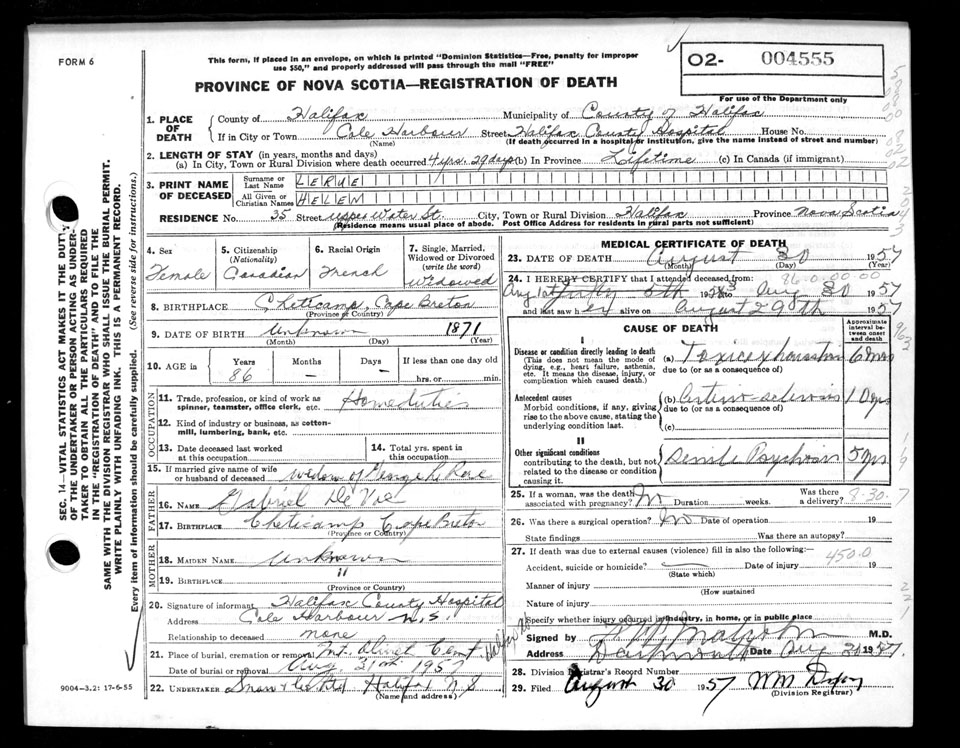 FORM 6
This form, if placed in an envelope, on which is printed "Dominion Statistics—Free, penalty for improper
use $50," and properly addressed will pass through the mail "FREE"
O2- 004555
For use of the Department only
PROVINCE OF NOVA SCOTIA—REGISTRATION OF DEATH
1. PLACE OF DEATH
County of Halifax Municipality of County of Halifax
If in City or Town Cole Harbour Street Halifax County Hospital House No.
(Name) (If death occurred in a hospital or institution, give the name instead of street and number)
2. LENGTH OF STAY (in years, months and days)
(a) In City, Town or Rural Division where death occurred 4 yrs. 29 days (b) In Province Lifetime (c) In Canada (if immigrant)
3. PRINT NAME OF DECEASED
Surname or Last Name LERUE
All Given or Christian Names HELEN
RESIDENCE No. 35 Street Upper Water St. City, Town or Rural Division Halifax Province Nova Scotia
(Residence means usual place of abode. Post Office Address for residents in rural parts not sufficient)
4. Sex Female
5. Citizenship (Nationality) Canadian
6. Racial Origin French
7. Single, Married, Widowed or Divorced (write the word) Widowed
8. BIRTHPLACE Cheticamp, Cape Breton
(Province or Country)
9. DATE OF BIRTH Unknown 1871
(Month) (Day) (Year)
10. AGE in Years 86 Months — Days — If less than one day old
hrs. or min.
OCCUPATION
11. Trade, profession, or kind of work as spinner, teamster, office clerk, etc. Home duties
12. Kind of industry or business, as cotton-mill, lumbering, bank, etc.
13. Date deceased last worked at this occupation
14. Total yrs. spent in this occupation
15. If married give name of wife or husband of deceased widow of George
FATHER
16. NAME Gabriel
17. BIRTHPLACE Cheticamp Cape Breton
(Province or Country)
MOTHER
18. MAIDEN NAME Unknown
19. BIRTHPLACE "
(Province or Country)
20. Signature of informant Halifax County Hospital
Address Cole Harbour N.S.
Relationship to deceased none
21. Place of burial, cremation or removal Mt. Olivet Cemt
Date of burial or removal Aug. 31 1957
22. UNDERTAKER Snow & Co Ltd Halifax N S
(Name and address)
MEDICAL CERTIFICATE OF DEATH
23. DATE OF DEATH August 30 1957
(Month) (Day)
86-0-00-00
24. I HEREBY CERTIFY that I attended deceased from:
to Aug 30 1957
and last saw h er alive on August 29th 1957
CAUSE OF DEATH
Approximate interval between onset and death
I
Disease or condition directly leading to death
(This does not mean the mode of dying, e.g., heart failure, asthenia, etc. It means the disease, injury, or complication which caused death.)
(a) Toxic exhaustion 6 mos
due to (or as a consequence of)
Antecedent causes
Morbid conditions, if any, giving rise to the above cause, stating the underlying condition last.
(b) Arterio-sclerosis 10 yrs
due to (or as a consequence of)
(c)
II
Other significant conditions contributing to the death, but not related to the disease or condition causing it.
Senile Psychosis 5 yrs
25. If a woman, was the death associated with pregnancy? No Duration weeks. Was there a delivery?
8-30-7
26. Was there a surgical operation? No Date of operation 19
State findings Was there an autopsy?
27. If death was due to external causes (violence) fill in also the following:—
450.0
Accident, suicide or homicide? Date of injury 19
(State which)
Manner of injury
(How sustained
Nature of injury
Specify whether injury occurred in industry, in home, or in public place
Signed by M.D.
Address Dartmouth Date Aug 30 1957.
28. Division Registrar's Record Number
29. Filed August 30 1957
(Division Registrar)
SEC. 14—VITAL STATISTICS ACT MAKES IT THE DUTY
OF THE UNDERTAKER OR PERSON ACTING AS UNDER-
TAKER TO OBTAIN ALL THE PARTICULARS REQUIRED
IN THE "REGISTRATION OF DEATH" AND TO FILE THE
SAME WITH THE DIVISION REGISTRAR WHO SHALL ISSUE THE BURIAL PERMIT.
WRITE PLAINLY WITH UNFADING INK. THIS IS A PERMANENT RECORD.
Every item of information should be carefully supplied. (See reverse side for instructions.)
9004-3.2: 17-6-55